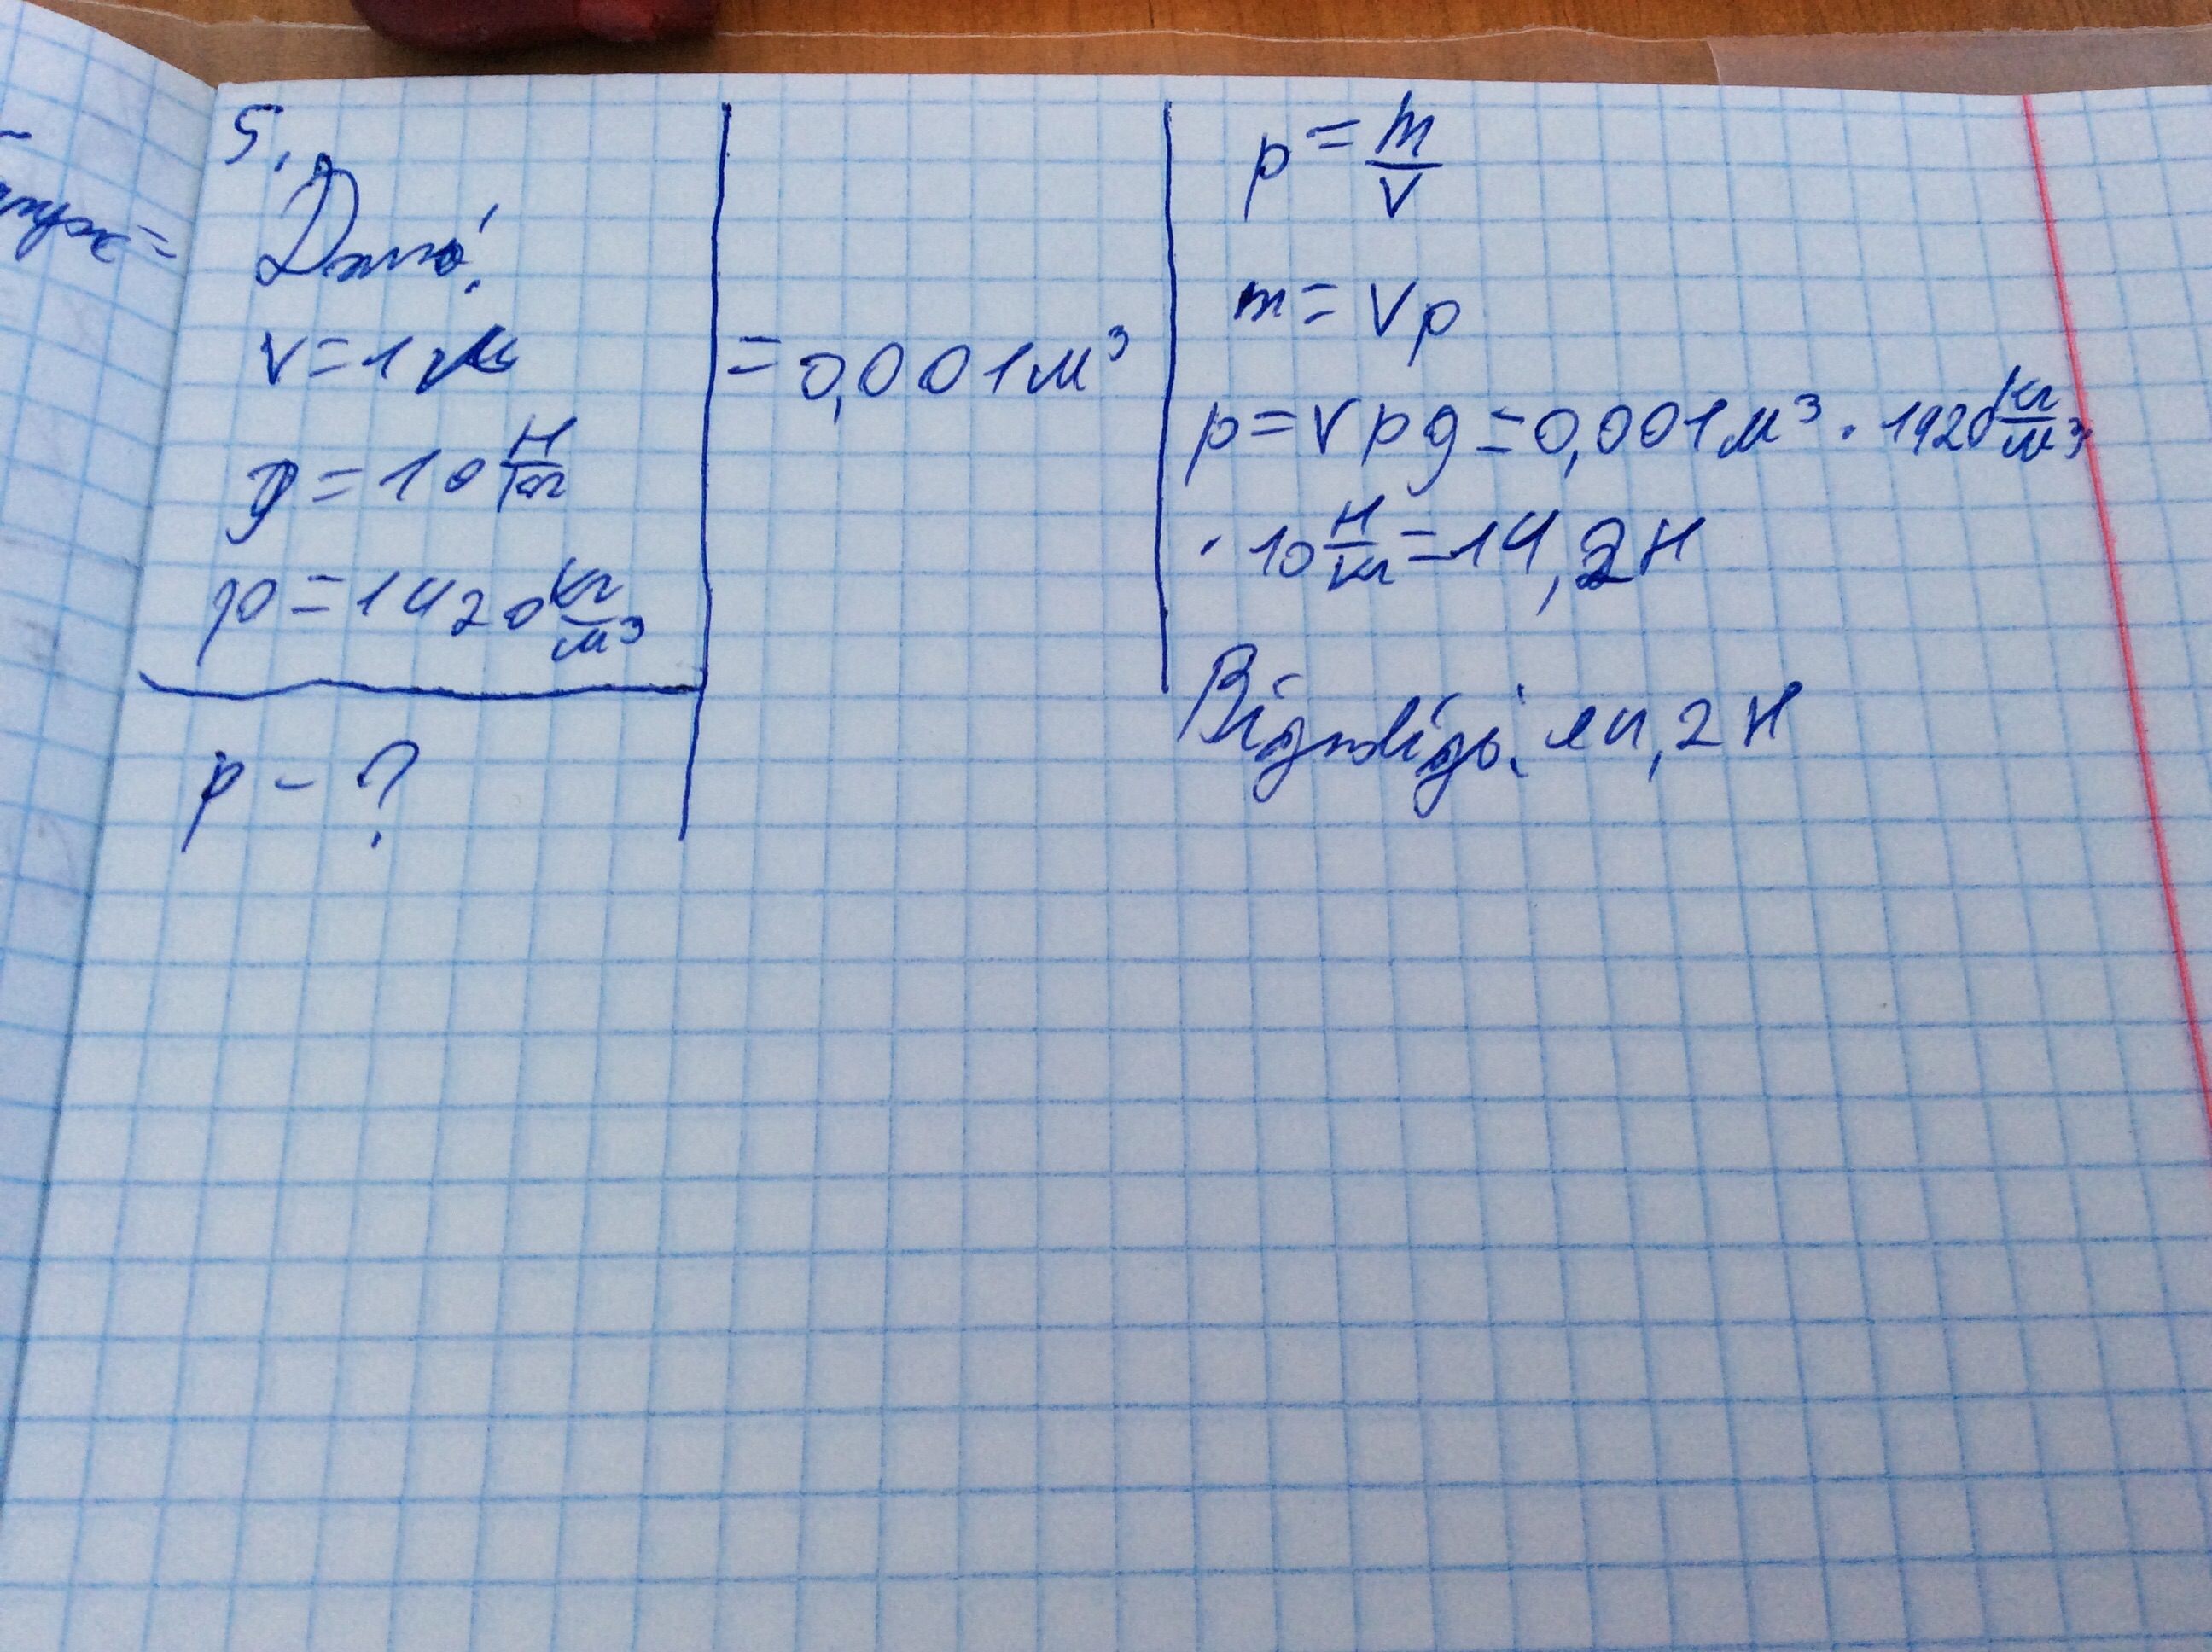 5.
Дано:
V = 1 л
g = 10 Н/кг
ρ = 1420 кг/м³
p - ?
= 0,001 м³
ρ = m/V
m = Vρ
p = Vρg = 0,001 м³ · 1420 кг/м³
· 10 Н/кг = 14,2 Н
Відповідь: 14,2 Н